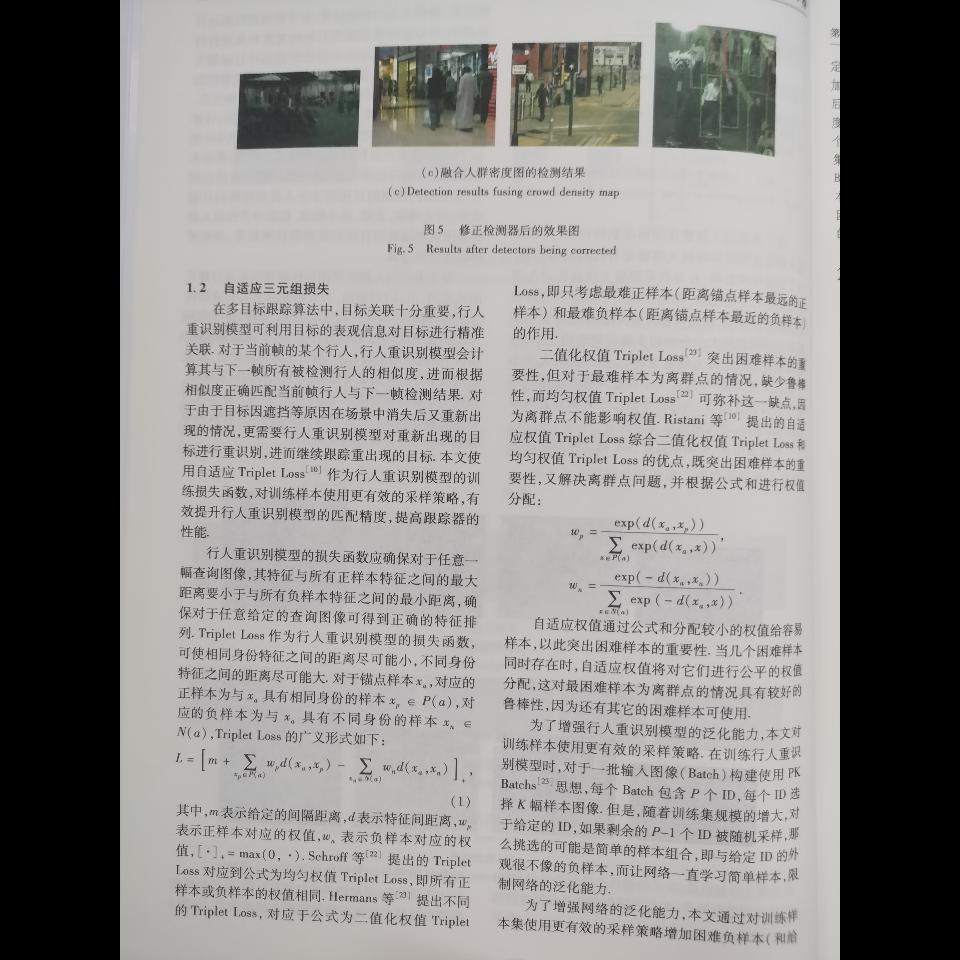 (c)融合人群密度图的检测结果
(c)Detection results fusing crowd density map
图5 修正检测器后的效果图
Fig.5 Results after detectors being corrected
1.2 自适应三元组损失
在多目标跟踪算法中,目标关联十分重要,行人
重识别模型可利用目标的表观信息对目标进行精准
关联. 对于当前帧的某个行人,行人重识别模型会计
算其与下一帧所有被检测行人的相似度,进而根据
相似度正确匹配当前帧行人与下一帧检测结果. 对
于由于目标因遮挡等原因在场景中消失后又重新出
现的情况,更需要行人重识别模型对重新出现的目
标进行重识别,进而继续跟踪重出现的目标. 本文使
用自适应 Triplet Loss[10] 作为行人重识别模型的训
练损失函数,对训练样本使用更有效的采样策略,有
效提升行人重识别模型的匹配精度,提高跟踪器的
性能.
行人重识别模型的损失函数应确保对于任意一
幅查询图像,其特征与所有正样本特征之间的最大
距离要小于与所有负样本特征之间的最小距离,确
保对于任意给定的查询图像可得到正确的特征排
列. Triplet Loss 作为行人重识别模型的损失函数,
可使相同身份特征之间的距离尽可能小,不同身份
特征之间的距离尽可能大. 对于锚点样本 xa,对应的
正样本为与 xa 具有相同身份的样本 xp ∈ P(a),对
应的负样本为与 xa 具有不同身份的样本 xn ∈
N(a),Triplet Loss 的广义形式如下:
L = [m + ∑xp∈P(a) wp d(xa,xp) − ∑xn∈N(a) wn d(xa,xn)]+,
(1)
其中,m 表示给定的间隔距离,d 表示特征间距离,wp
表示正样本对应的权值,wn 表示负样本对应的权
值,[·]+ = max(0, ·). Schroff 等[22] 提出的 Triplet
Loss 对应到公式为均匀权值 Triplet Loss,即所有正
样本或负样本的权值相同. Hermans 等[23] 提出不同
的 Triplet Loss, 对应于公式为二值化权值 Triplet
Loss,即只考虑最难正样本(距离锚点样本最远的正
样本) 和最难负样本(距离锚点样本最近的负样本)
的作用.
二值化权值 Triplet Loss[23] 突出困难样本的重
要性,但对于最难样本为离群点的情况,缺少鲁棒
性,而均匀权值 Triplet Loss[22] 可弥补这一缺点,因
为离群点不能影响权值. Ristani 等[10] 提出的自适
应权值 Triplet Loss 综合二值化权值 Triplet Loss 和
均匀权值 Triplet Loss 的优点,既突出困难样本的重
要性,又解决离群点问题,并根据公式和进行权值
分配:
wp = exp(d(xa,xp)) / ∑x∈P(a) exp(d(xa,x)),
wn = exp(− d(xa,xn)) / ∑x∈N(a) exp(− d(xa,x)).
自适应权值通过公式和分配较小的权值给容易
样本,以此突出困难样本的重要性. 当几个困难样本
同时存在时,自适应权值将对它们进行公平的权值
分配,这对最困难样本为离群点的情况具有较好的
鲁棒性,因为还有其它的困难样本可使用.
为了增强行人重识别模型的泛化能力,本文对
训练样本使用更有效的采样策略. 在训练行人重识
别模型时,对于一批输入图像(Batch)构建使用 PK
Batchs[23] 思想,每个 Batch 包含 P 个 ID,每个 ID 选
择 K 幅样本图像. 但是,随着训练集规模的增大,对
于给定的 ID,如果剩余的 P-1 个 ID 被随机采样,那
么挑选的可能是简单的样本组合,即与给定 ID 的外
观很不像的负样本,而让网络一直学习简单样本,限
制网络的泛化能力.
为了增强网络的泛化能力,本文通过对训练样
本集使用更有效的采样策略增加困难负样本(和给